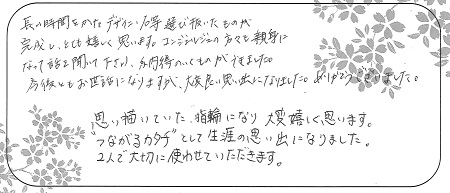 長い時間をかけ デザイン・石等 選び抜いたものが
完成し、とても嬉しく思います。コンシェルジュの方々も親身に
なって話を聞いて下さり、納得のいくものができました。
今後ともお世話になりますが、大変良い思い出になりました。ありがとうございました。
思い描いていた指輪になり 大変嬉しく思います。
"つながるカタチ"として生涯の思い出になりました。
2人で大切に使わせていただきます。